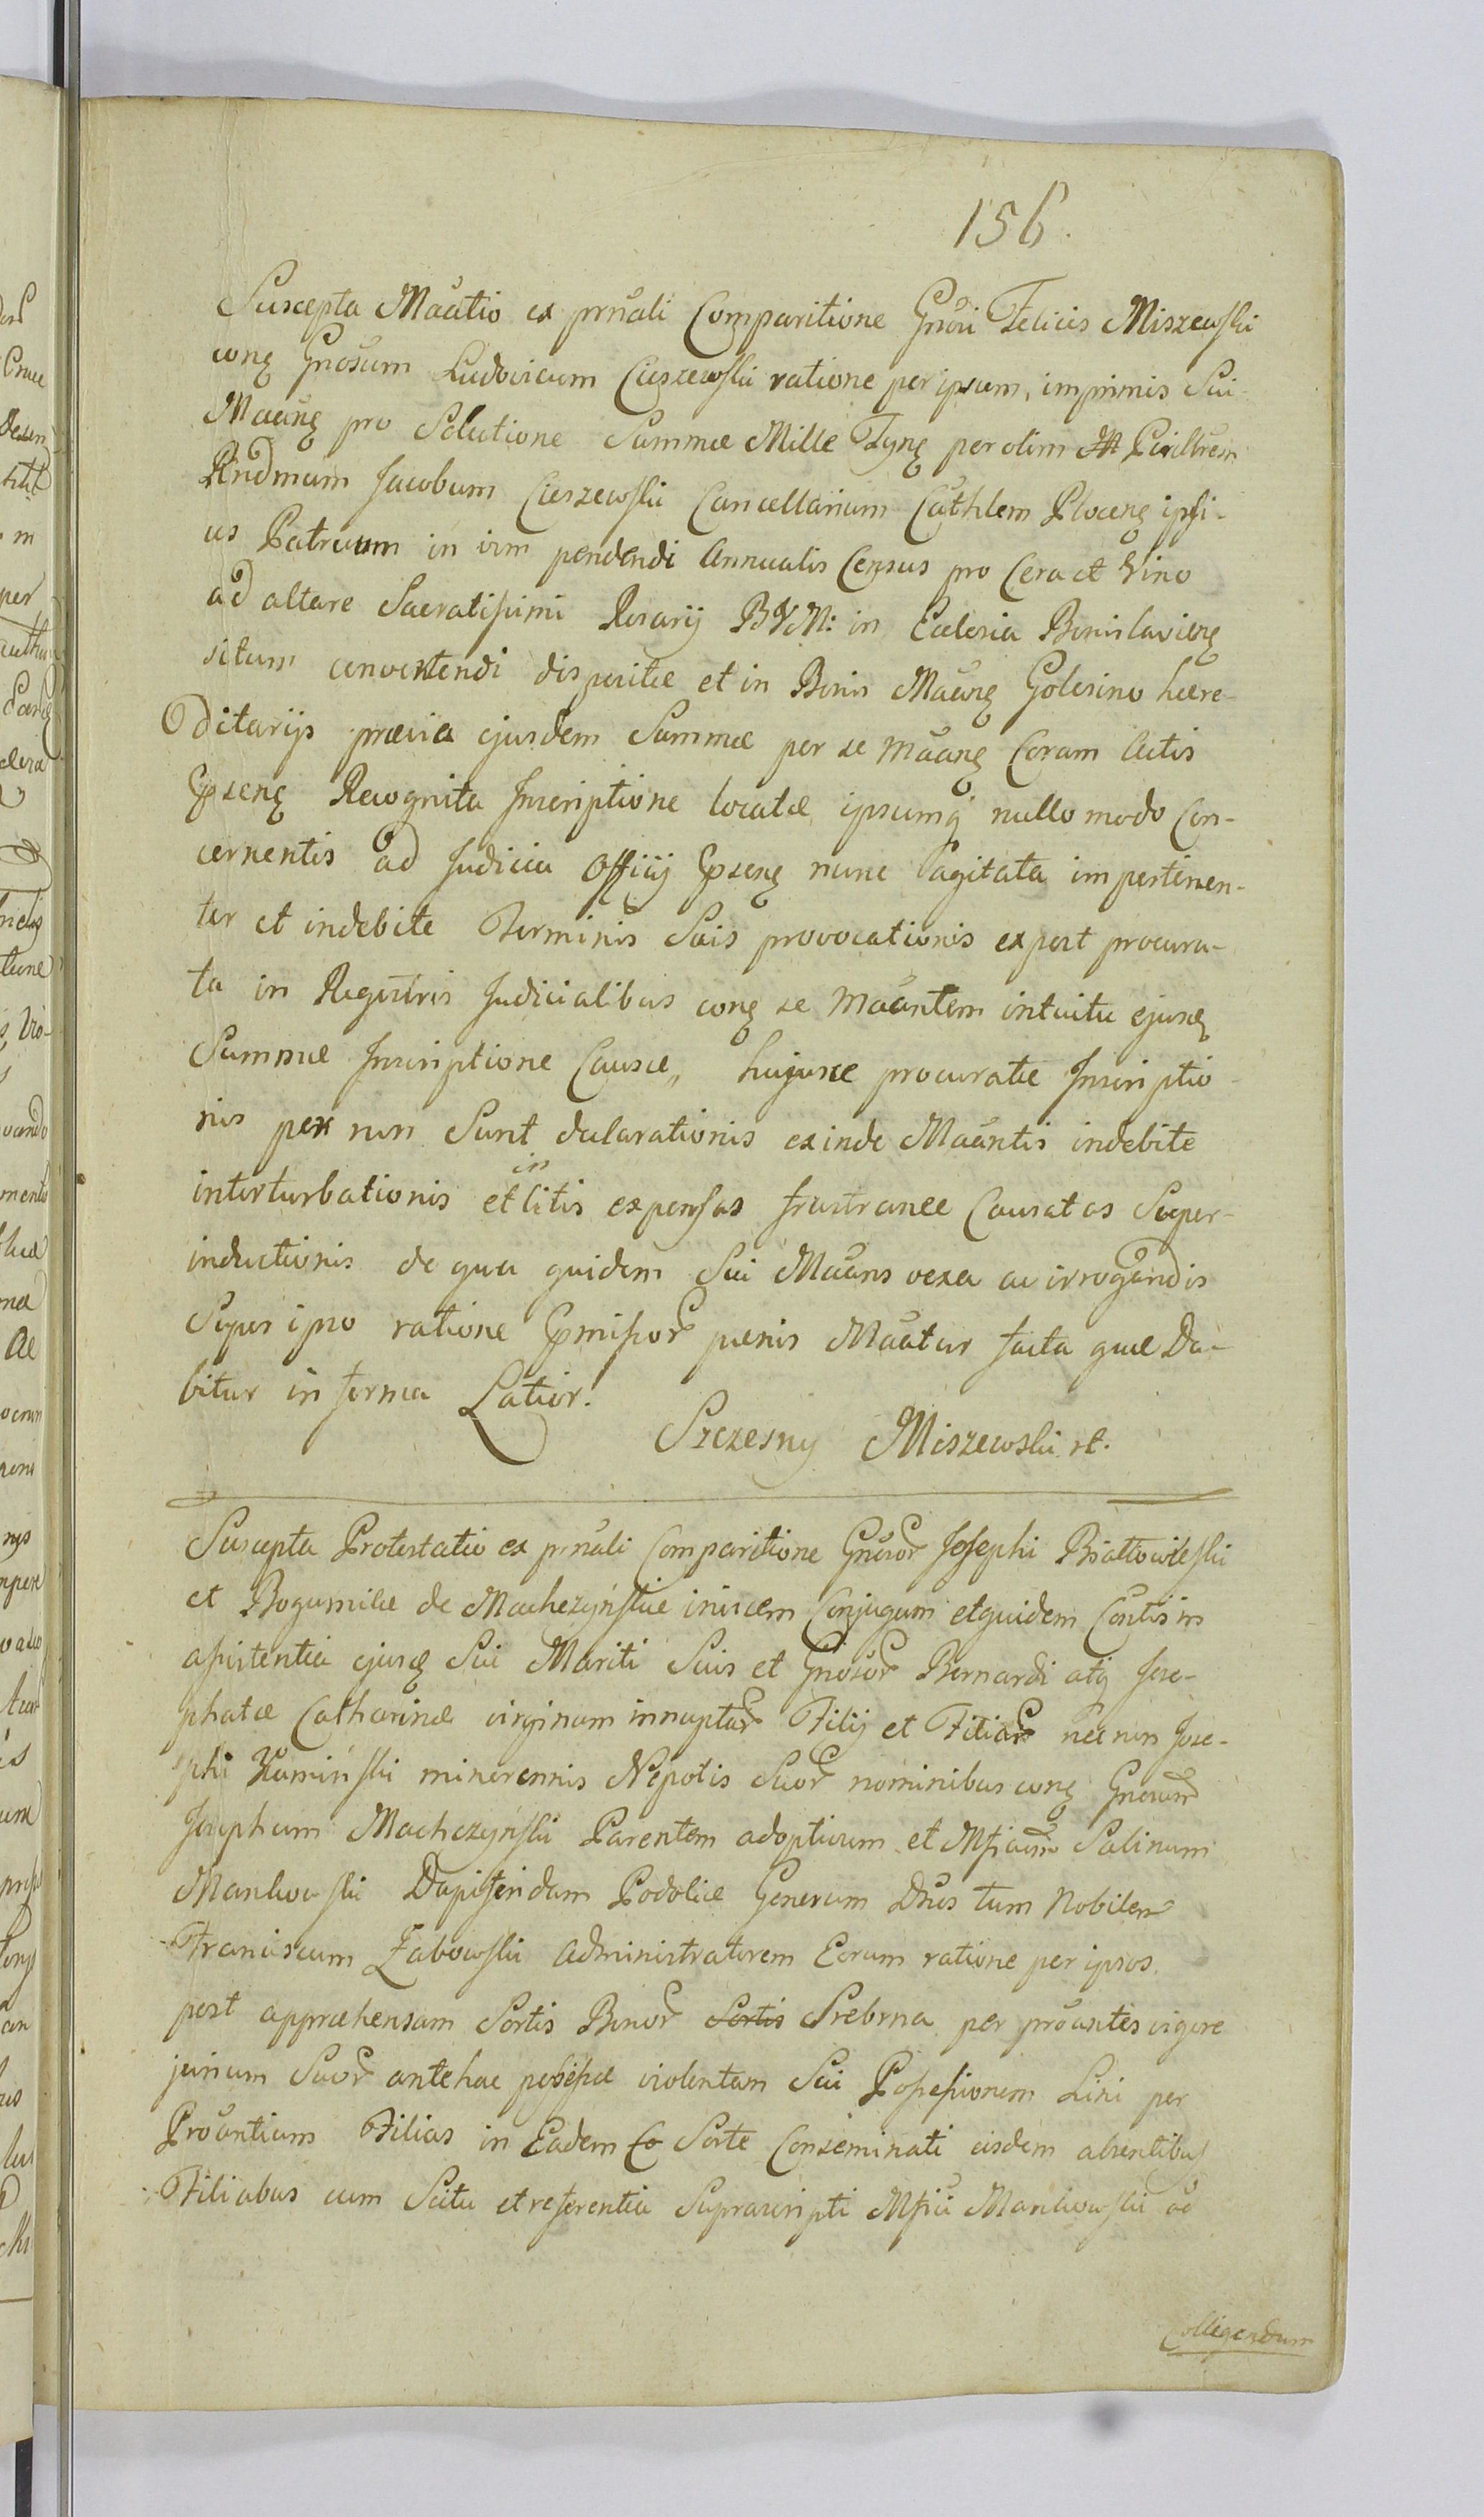 156.
Suscepta Maătio ex prnăli Comparitione Gnŏsi Felicis Miszewski
conq Gnosum Ludovicum Cieszewski ratione per ipsum, imprimis Sui
Maănq pro Solutione Summæ Mille Tynq per olim Perillrem
Rndmum Jacobum Cieszewski Cancellarium Cathlem Plocenq ipsi-
us Patruum in vim pendendi Annualis Census pro Cera et Vino
ad altare Sacratissimi Rosarij BVM: in Ecclesia Bonislavienq
situm convertendi dispositæ et in Bonis Maănq Golesino hære-
ditarijs prævia ejusdem Summæ per se maănq Coram Actis
Recognita Inscriptione locatæ ipsumq nullo modo Con-
cernentis ad Judicia Officij nunc agitata impertinen-
ter et indebite Terminis Suis provocationis expost procura-
ta in Regestris Judicialibus conq se Maăntem intuitu ejusq
Summæ Inscriptione Causæ, hujusce procuratæ Inscriptio
nis per non Sunt declarationis exinde Maăntis indebite
interturbationis et in litis expensas frustranee Causatas Super-
inductionis de qua quidem Sui Maăns vexa ac irrogandis
Super ipso ratione præmissor pænis Maătur facta quæ Da-
bitur in forma Latior.
Szczesny Miszewski

Suscepta Protestatio ex prnăli Comparitione Gnŏsor Josephi Białłowieski
et Bogumilæ de Machczyńskie invicem Conjugum et quidem Cons̆tis in
assistentia ejusq Sui Mariti Suis et Gnosor Bernardi atq Jose-
phatæ Catharinæ virginum innuptar Filij et Filiar nec non Jose-
phi Kamiński minorennis Nepotis Suor nominibus conq Gnosum
Josephum Machczyński Parentem adoptivum et Mficum Salinum
Mankowski Dapiferidam Podoliæ Generum Dnos tum Nobilem
Franciscum Zabowski Administratorem Eorum ratione per ipsos
post appræhensam Sortis Bonor Sortis Srebrna per proăntes vigore
jurium Suor antehac possessæ violentam Sui Possessionem Lini per
Proăntium Filias in Eadem Sorte Conseminati eisdem absentibus
Filiabus cum Scitu et referentia Suprascripti Mfici Mankowski ad
Colligendum